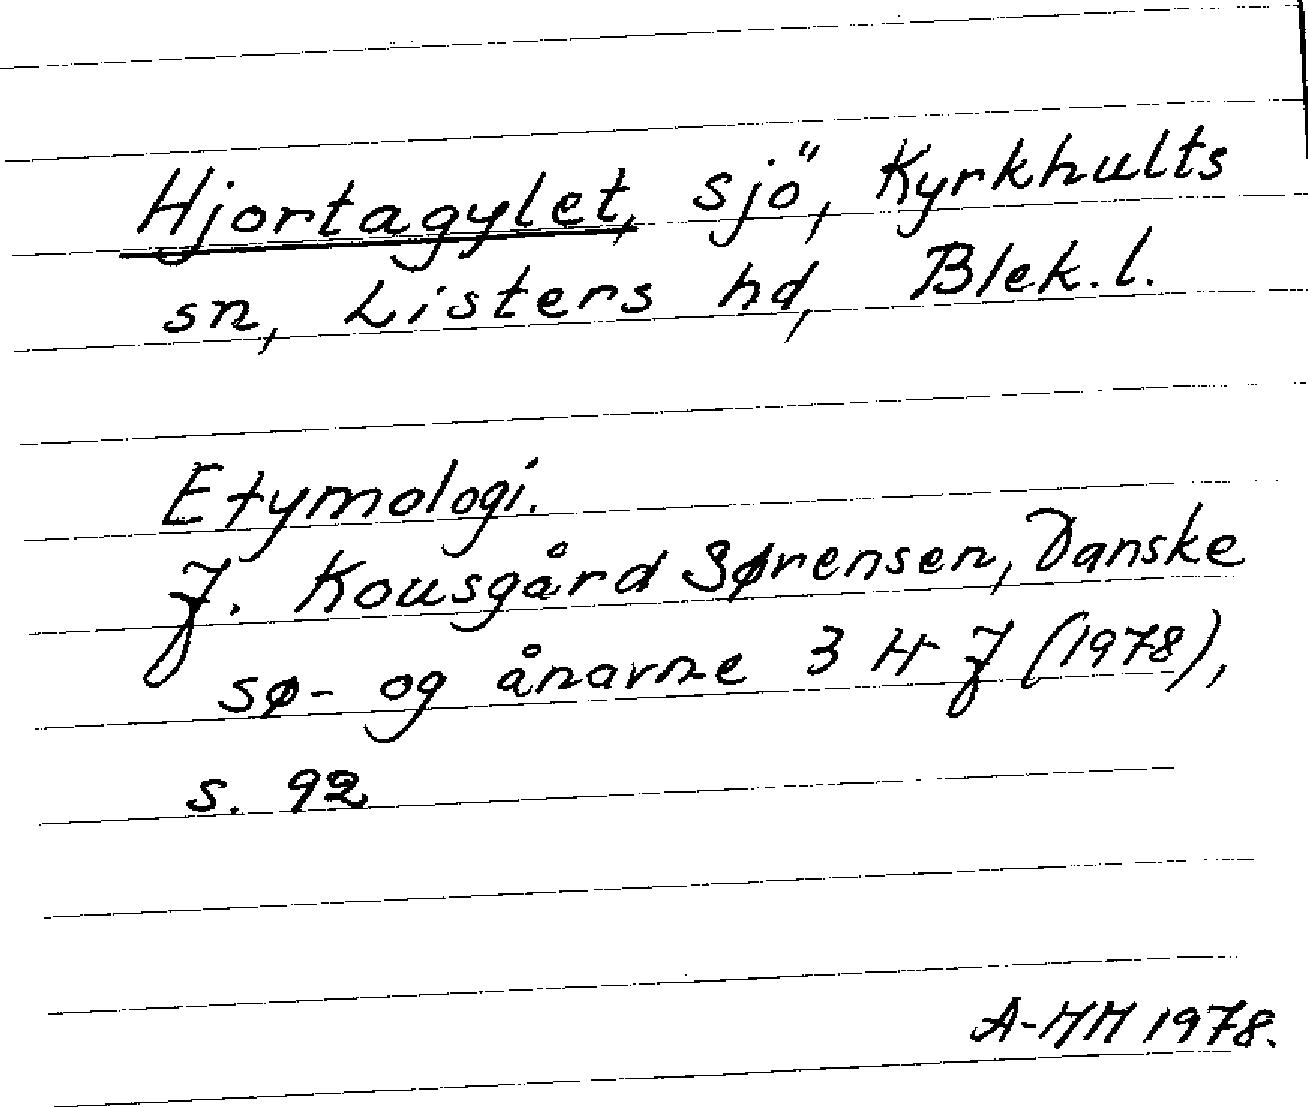 Hjortagylet, sjö, Kyrkhults
sn, Listers hd, Blek. l.
Etymologi.
J. Kousgård Sørensen, Danske
sø- og ånavne 3 H-J (1978),
s. 92
A-HH 1978.